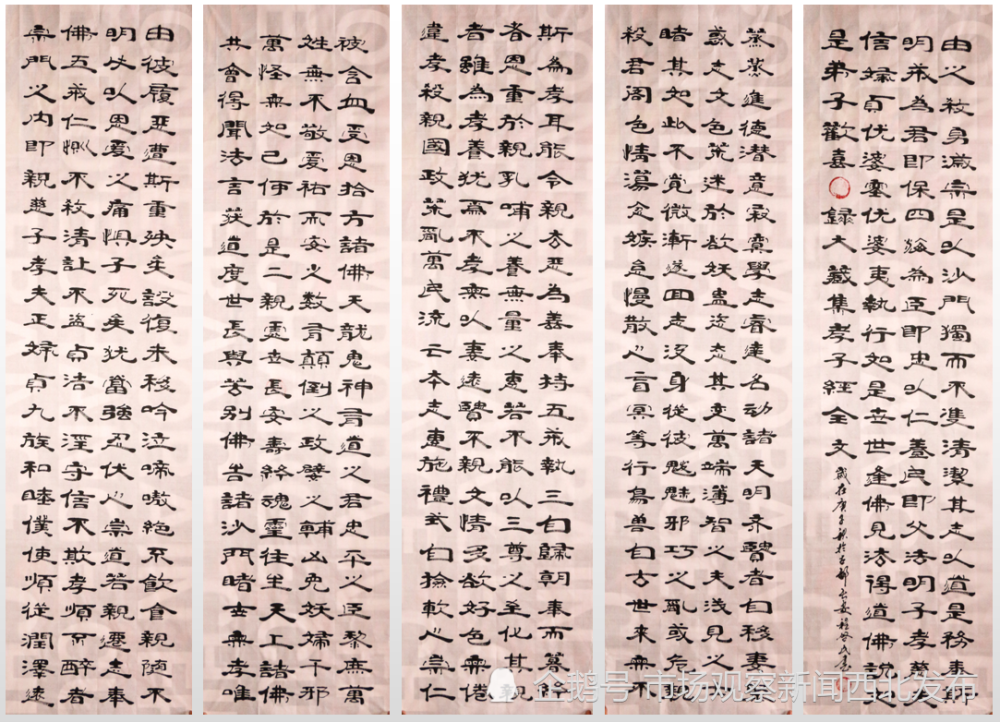 由彼履惡遭斯重殃矣設復未移吟泣啼嗷絕不飲食親陋不
明必以恩愛之痛惧子死矣犹當強忍伏心崇道若親遷志奉
佛五戒仁惻不殺清讓不盗貞洁不淫守信不欺孝順不醉者
宗門之内即親慈子孝夫正婦貞九族和睦僕使順從潤澤遠
被含血受恩拾方諸佛天龍鬼神有道之君忠平之臣黎庶萬
姓無不敬愛祐而安之数有顛倒之政嬖之輔凶兇妖婦千邪
萬怪無如己何於是二親處世長安壽終魂靈往生天上諸佛
共會得聞法言获道度世長與苦别佛告諸沙門睹世無孝唯
斯為孝耳能令親去惡為善奉持五戒執三自歸朝奉而暮終
者恩重於親乳哺之養無量之惠若不能以三尊之至化其親
者雖為孝養犹為不孝無以妻遠賢不親女情多欲好色無倦
違孝殺親國政荒亂萬民流亡本志惠施禮式自撿軟心崇仁
蒸蒸進德潜意寂寞學志睿達名动諸天明齊賢者自移妻祭
惑志女色荒迷於欲妖蠱姿态其变萬端薄智之夫浅見之士
睹其如此不覺微漸遂回志没身從彼魅邪巧之亂或危親
殺君色情蕩念嫉怠慢散心盲冥等行鳥兽自古世來無不
由之殺身滅宗是以沙門獨而不雙清潔其志以道是務奉斯
明戒為君即保四海為臣即忠以仁養民即父法明子孝慈夫
信婦貞优婆塞优婆夷執行如是世世逢佛見法得道佛說之
是弟子歡喜 錄大藏集孝子經全文
歲在庚子秋於
企鹅号 市场观察新闻西北发布